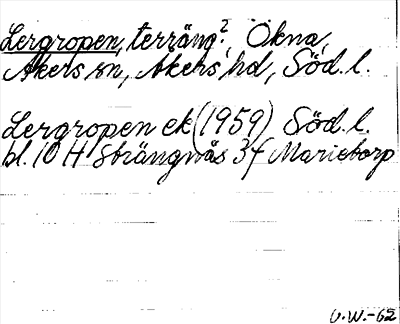 Lergropen, terräng?, Ökna,
Åkers sn, Åkers hd, Söd. l.
Lergropen ek (1959) Söd. l.
bl. 10 H Strängnäs 3f Marietorp
U.W.-62